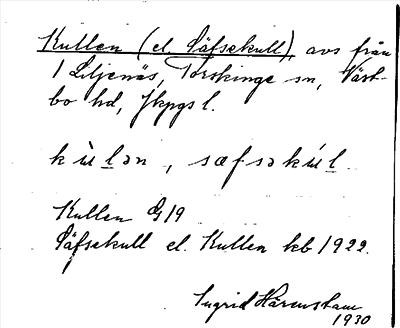 Kullen (el. Säfsekull), avs från
1 Liljenäs, Torskinge sn, Väst-
bo hd, Jkpgs l.
kùlən, sæfsəkúl
Kullen G19
Säfsekull el. Kullen kb 1922.
Ingrid Härenstam
1930